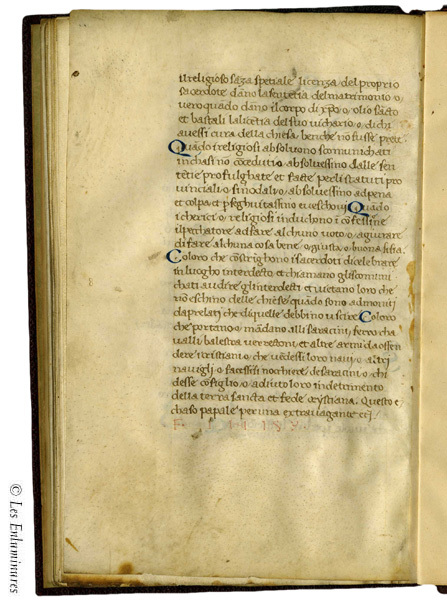 il religioso sāza spetiale licenza del proprio
sacerdote dāno la sentētia del matrimonio o
vero quādo dāno il corpo di xp̄o o olio sāto
et bastali la licētia del suo vichario o di chi
avessi cura della chiesa benche nō fusse prete
Quādo i religiosi absolvono scomunichati
in chasi nō cōceduti o absolvessino dalle sen
tētie promulghate et fatte per li statuti pro
vinciali o sinodali o absolvessino da pena
et colpa et pseghuitassino e veschovi Quādo
i cherici o religiosi induchono i cōfessione
il pechatore ad fare alchuno voto o a giurare
di fare alchuna cosa bene o giusta o buona
Coloro che cōstrighono i sacerdoti di celebrare
in luogho interdecto et chiamano gli scomuni
chati a udire gl interdetti et vietano loro che
nō eschino delle chiese quādo sono admoniti
da prelati che di quelle debbino uscire Coloro
che portano o mādano alli saracini ferro cha
valli balestra et altre armi da offen
dere i cristiani o che vēdessi loro navi o altri
navigli o facessisi nocchiere de saracini o chi
desse cōsiglio o adiuto loro in detrimento
della terra sancta et fede crystiana. Questo e
chaso papale per una extravagante
F I N I S
© Les Enluminures